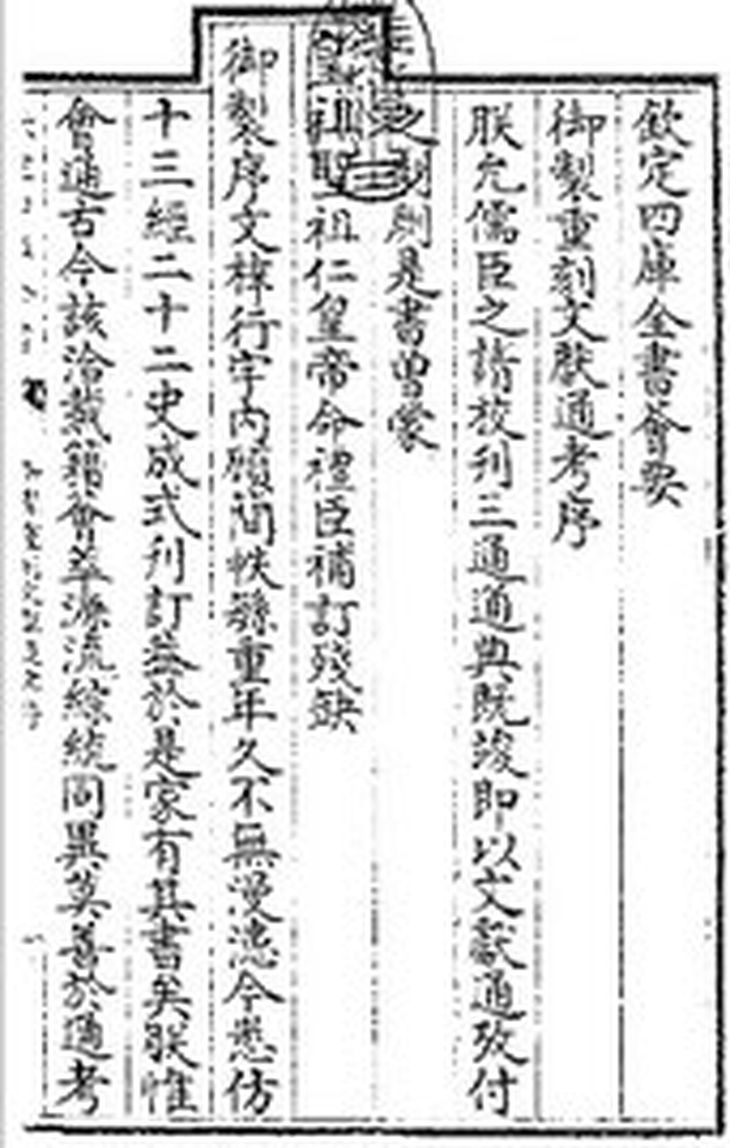 欽定四庫全書薈要
御製重刻文獻通考序
朕允儒臣之請校刊三通通典既竣即以文獻通攷付
之剞劂是書曾蒙
皇祖聖祖仁皇帝命禮臣補訂殘缺
御製序文梓行宇内顧簡帙繇重年久不無漫漶今悉仿
十三經二十二史成式刊訂益於是家有其書矣朕惟
會通古今該洽載籍會萃源流綜統同異莫善於通考